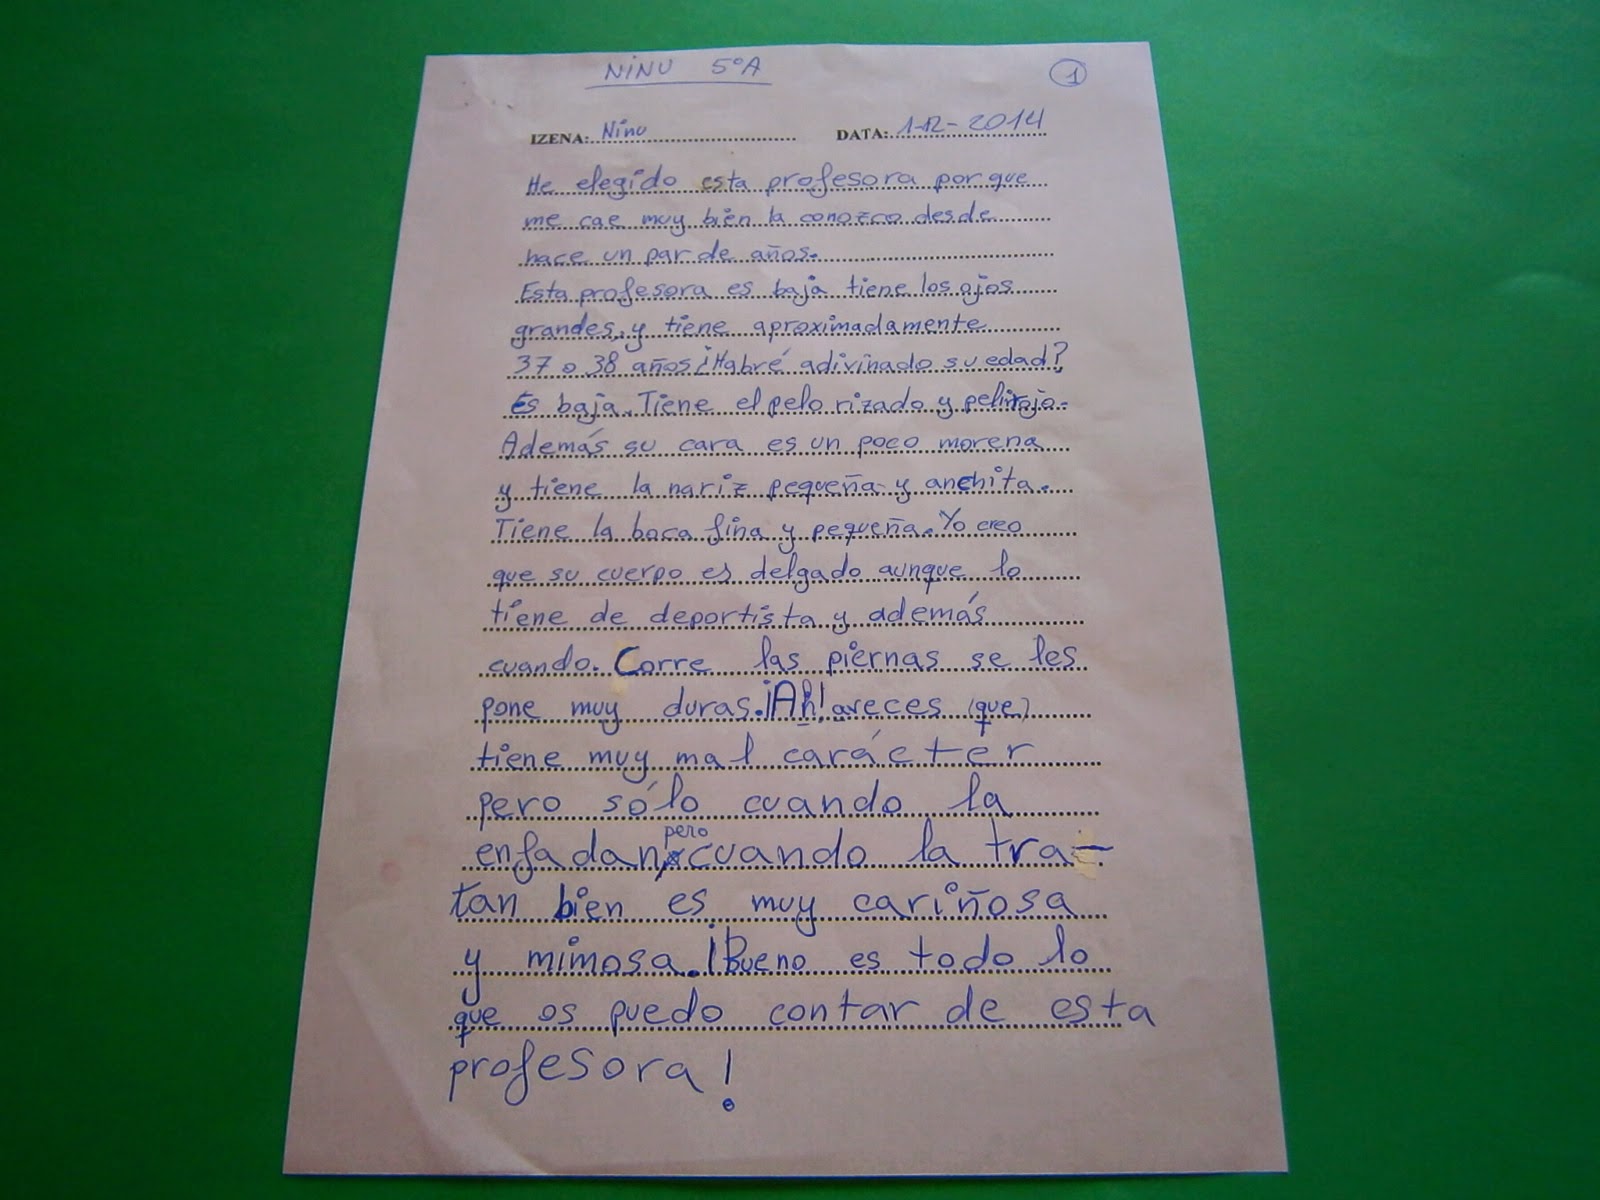 NINU 5ºA
1
IZENA: Ninu DATA: 1-12-2014
He elegido esta profesora por que
me cae muy bien la conozco desde
hace un par de años.
Esta profesora es baja tiene los ojos
grandes, y tiene aproximadamente
37 o 38 años ¿Habré adivinado su edad?
Es baja. Tiene el pelo rizado y pelirrojo.
Además su cara es un poco morena
y tiene la nariz pequeña y anchita.
Tiene la boca fina y pequeña. Yo creo
que su cuerpo es delgado aunque lo
tiene de deportista y además
cuando. Corre las piernas se les
pone muy duras. ¡Ah! aveces (que)
tiene muy mal carácter
pero sólo cuando la
enfadan, pero cuando la tra-
tan bien es muy cariñosa
y mimosa. ¡Bueno es todo lo
que os puedo contar de esta
profesora!